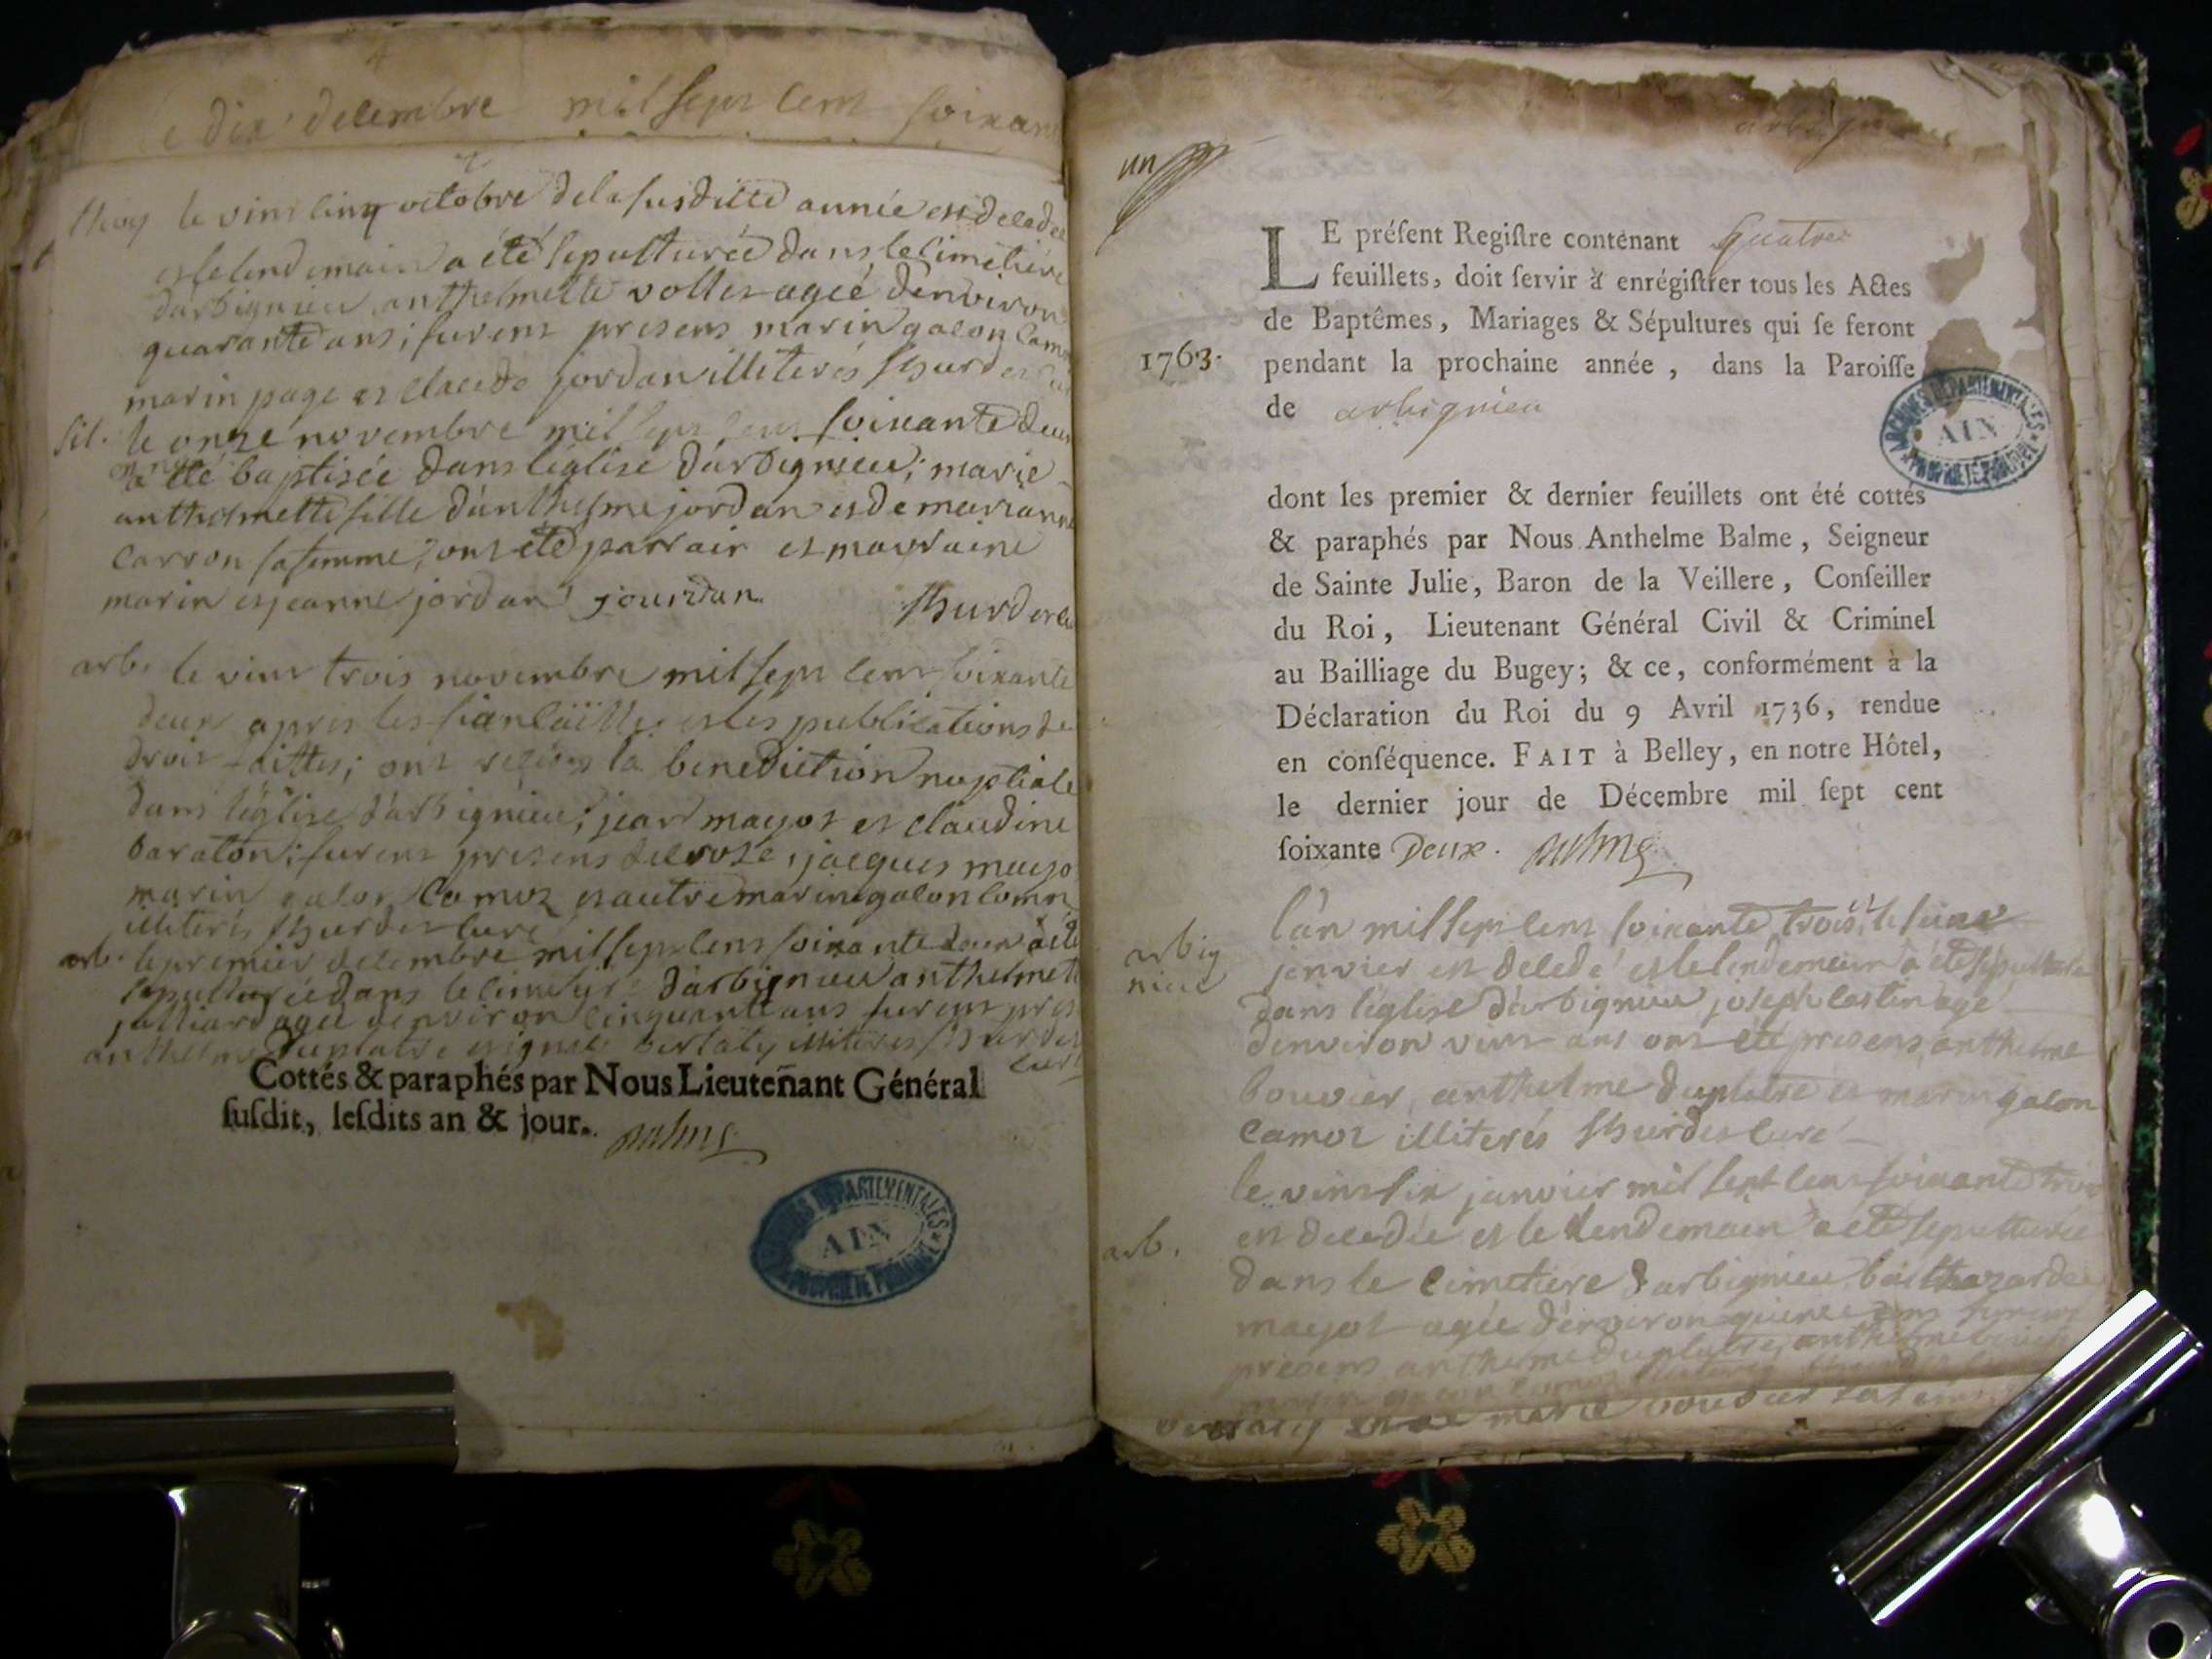 le dix decembre mil sept cent soixan
thoy le vint cinq octobre de la susditte année est decedée
et le lendemain a été sepulturée dans le cimetiere
darbignieu anthelmette vollet agée denviron
quarante ans; furent presens marin galon
marin page et claude jordan illiterés hurdes
sil. le onze novembre mil sept cent soixante deux
a été baptisée dans léglise d'arbignieu; marie
anthelmette fille d'anthelme jordan et de marianne
carron sa femme; ont été parrain et marraine
marin et jeanne jordan jourdan hurdes
arb. le vint trois novembre mil sept cent soixante
deux apres les fiançäilles et les publications de
droit faittes; ont reçeu la benediction nuptiale
dans l'église d'arbignieu; jean mayot et claudine
baraton; furent presens jacques mayo
marin galon camoz et autre marin galon
illiterés hurdes curé
arb. le premier decembre mil sept cent soixante deux a été
sepulturée dans le cimetiere d'arbignieu anthelmet
julliard agée denviron cinquante ans furent pres
anthelme duplatre et illiterés hurdes
curé
Cottés & paraphés par Nous Lieuteñant Général
ſuſdit, leſdits an & jour. Balme
ARCHIVES DÉPARTEMENTALES
AIN
PROPRIÉTÉ PUBLIQUE
un
LE préſent Regiſtre contenant quatre
feuillets, doit ſervir à enrégiſtrer tous les Actes
de Baptêmes, Mariages & Sépultures qui ſe feront
1763. pendant la prochaine année, dans la Paroiſſe
de arbignieu
ARCHIVES DÉPARTEMENTALES
AIN
PROPRIÉTÉ PUBLIQUE
dont les premier & dernier feuillets ont été cottés
& paraphés par Nous Anthelme Balme, Seigneur
de Sainte Julie, Baron de la Veillere, Conſeiller
du Roi, Lieutenant Général Civil & Criminel
au Bailliage du Bugey; & ce, conformément à la
Déclaration du Roi du 9 Avril 1736, rendue
en conſéquence. FAIT à Belley, en notre Hôtel,
le dernier jour de Décembre mil ſept cent
ſoixante Deux. Balme
l'an mil sept cent soixante trois, le
arbig
nieu
janvier est decedé et le lendemain a été sepulturé
dans l'église d'arbignieu joseph agé
d'environ vint ans ont été presens anthelme
bouvier, anthelme duplatre et marin galon
camoz illiterés hurdes curé
le vint six janvier mil sept cent soixante trois
arb. est decedée et le lendemain a été sepulturée
dans le cimetiere d'arbignieu balthazarde
mayot agée d'environ quinze ans furent
presens anthelme duplatre, anthelme
marie bouvier